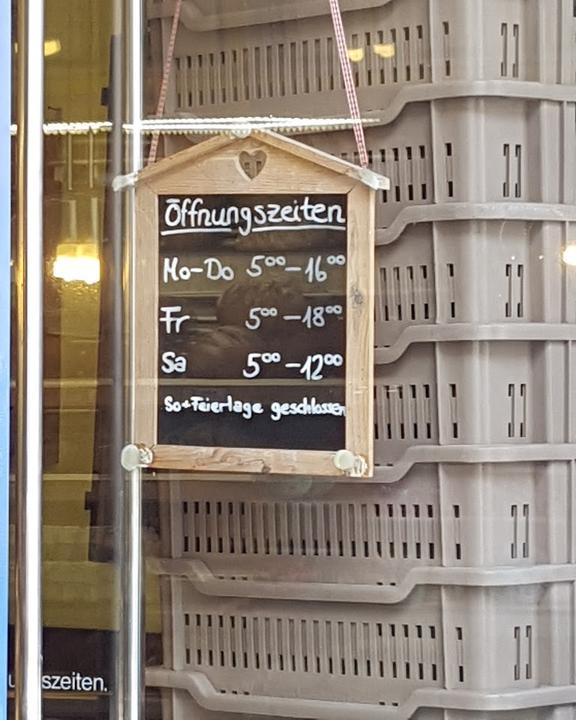 Öffnungszeiten
Mo-Do 5⁰⁰-16⁰⁰
Fr 5⁰⁰-18⁰⁰
Sa 5⁰⁰-12⁰⁰
So+Feiertage geschlossen
szeiten.